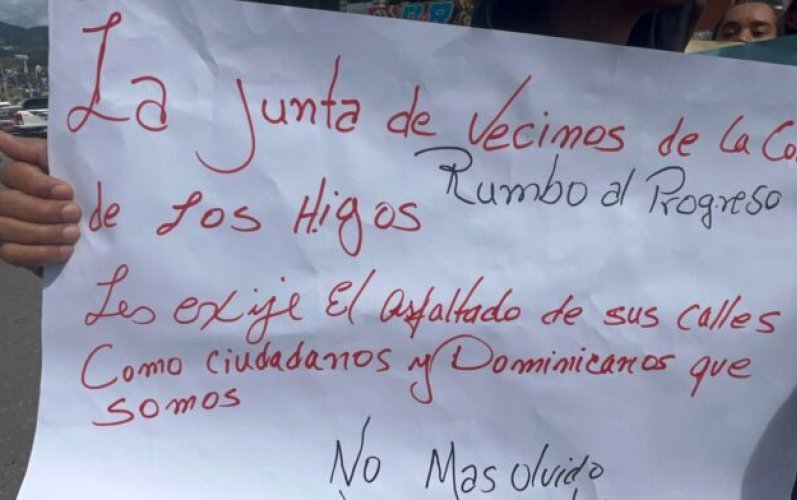 La Junta de Vecinos de La Co
Rumbo al Progreso
de Los Higos
Les exije El asfaltado de sus calles
Como ciudadanos y Dominicanos que
somos
No Mas olvido